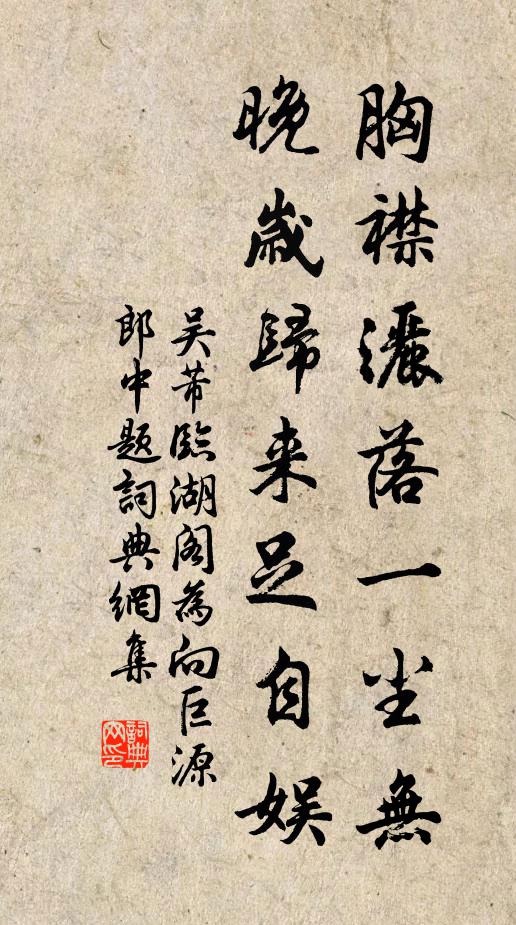 胸襟灑落一尘無
晚歲歸来足自娱
吴芾臨湖阁為向巨源
郎中题詞典網集
詞典
网印